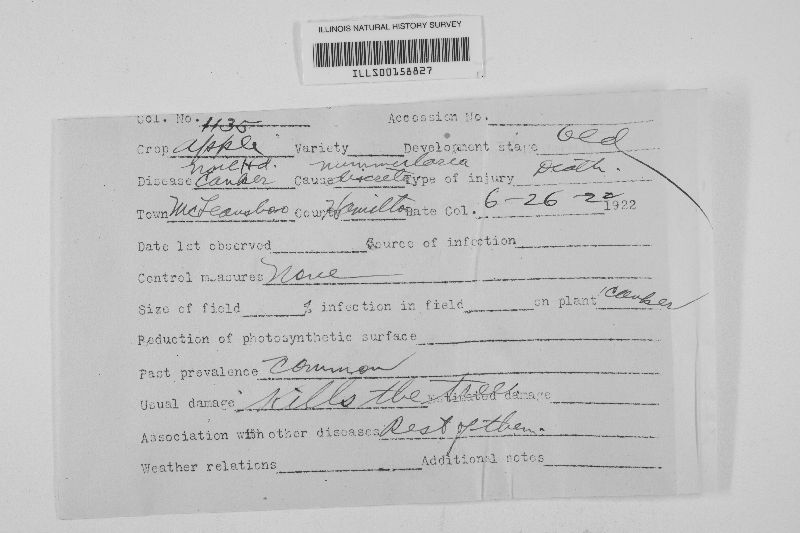 ILLINOIS NATURAL HISTORY SURVEY
ILLS00158827
Col. No. 1135 Accession No.
Crop Apple Variety Development stage Old
Disease Nail Hd. Canker Cause Nummularia discreta Type of injury Death.
Town McLeansboro County Hamilton Date Col. 6-26-22 1922
Date 1st observed Source of infection
Control measures None
Size of field % infection in field on plant Canker
Reduction of photosynthetic surface
Past prevalence Common
Usual damage Kills the trees Estimated damage
Association with other diseases Rest of them.
Weather relations Additional notes